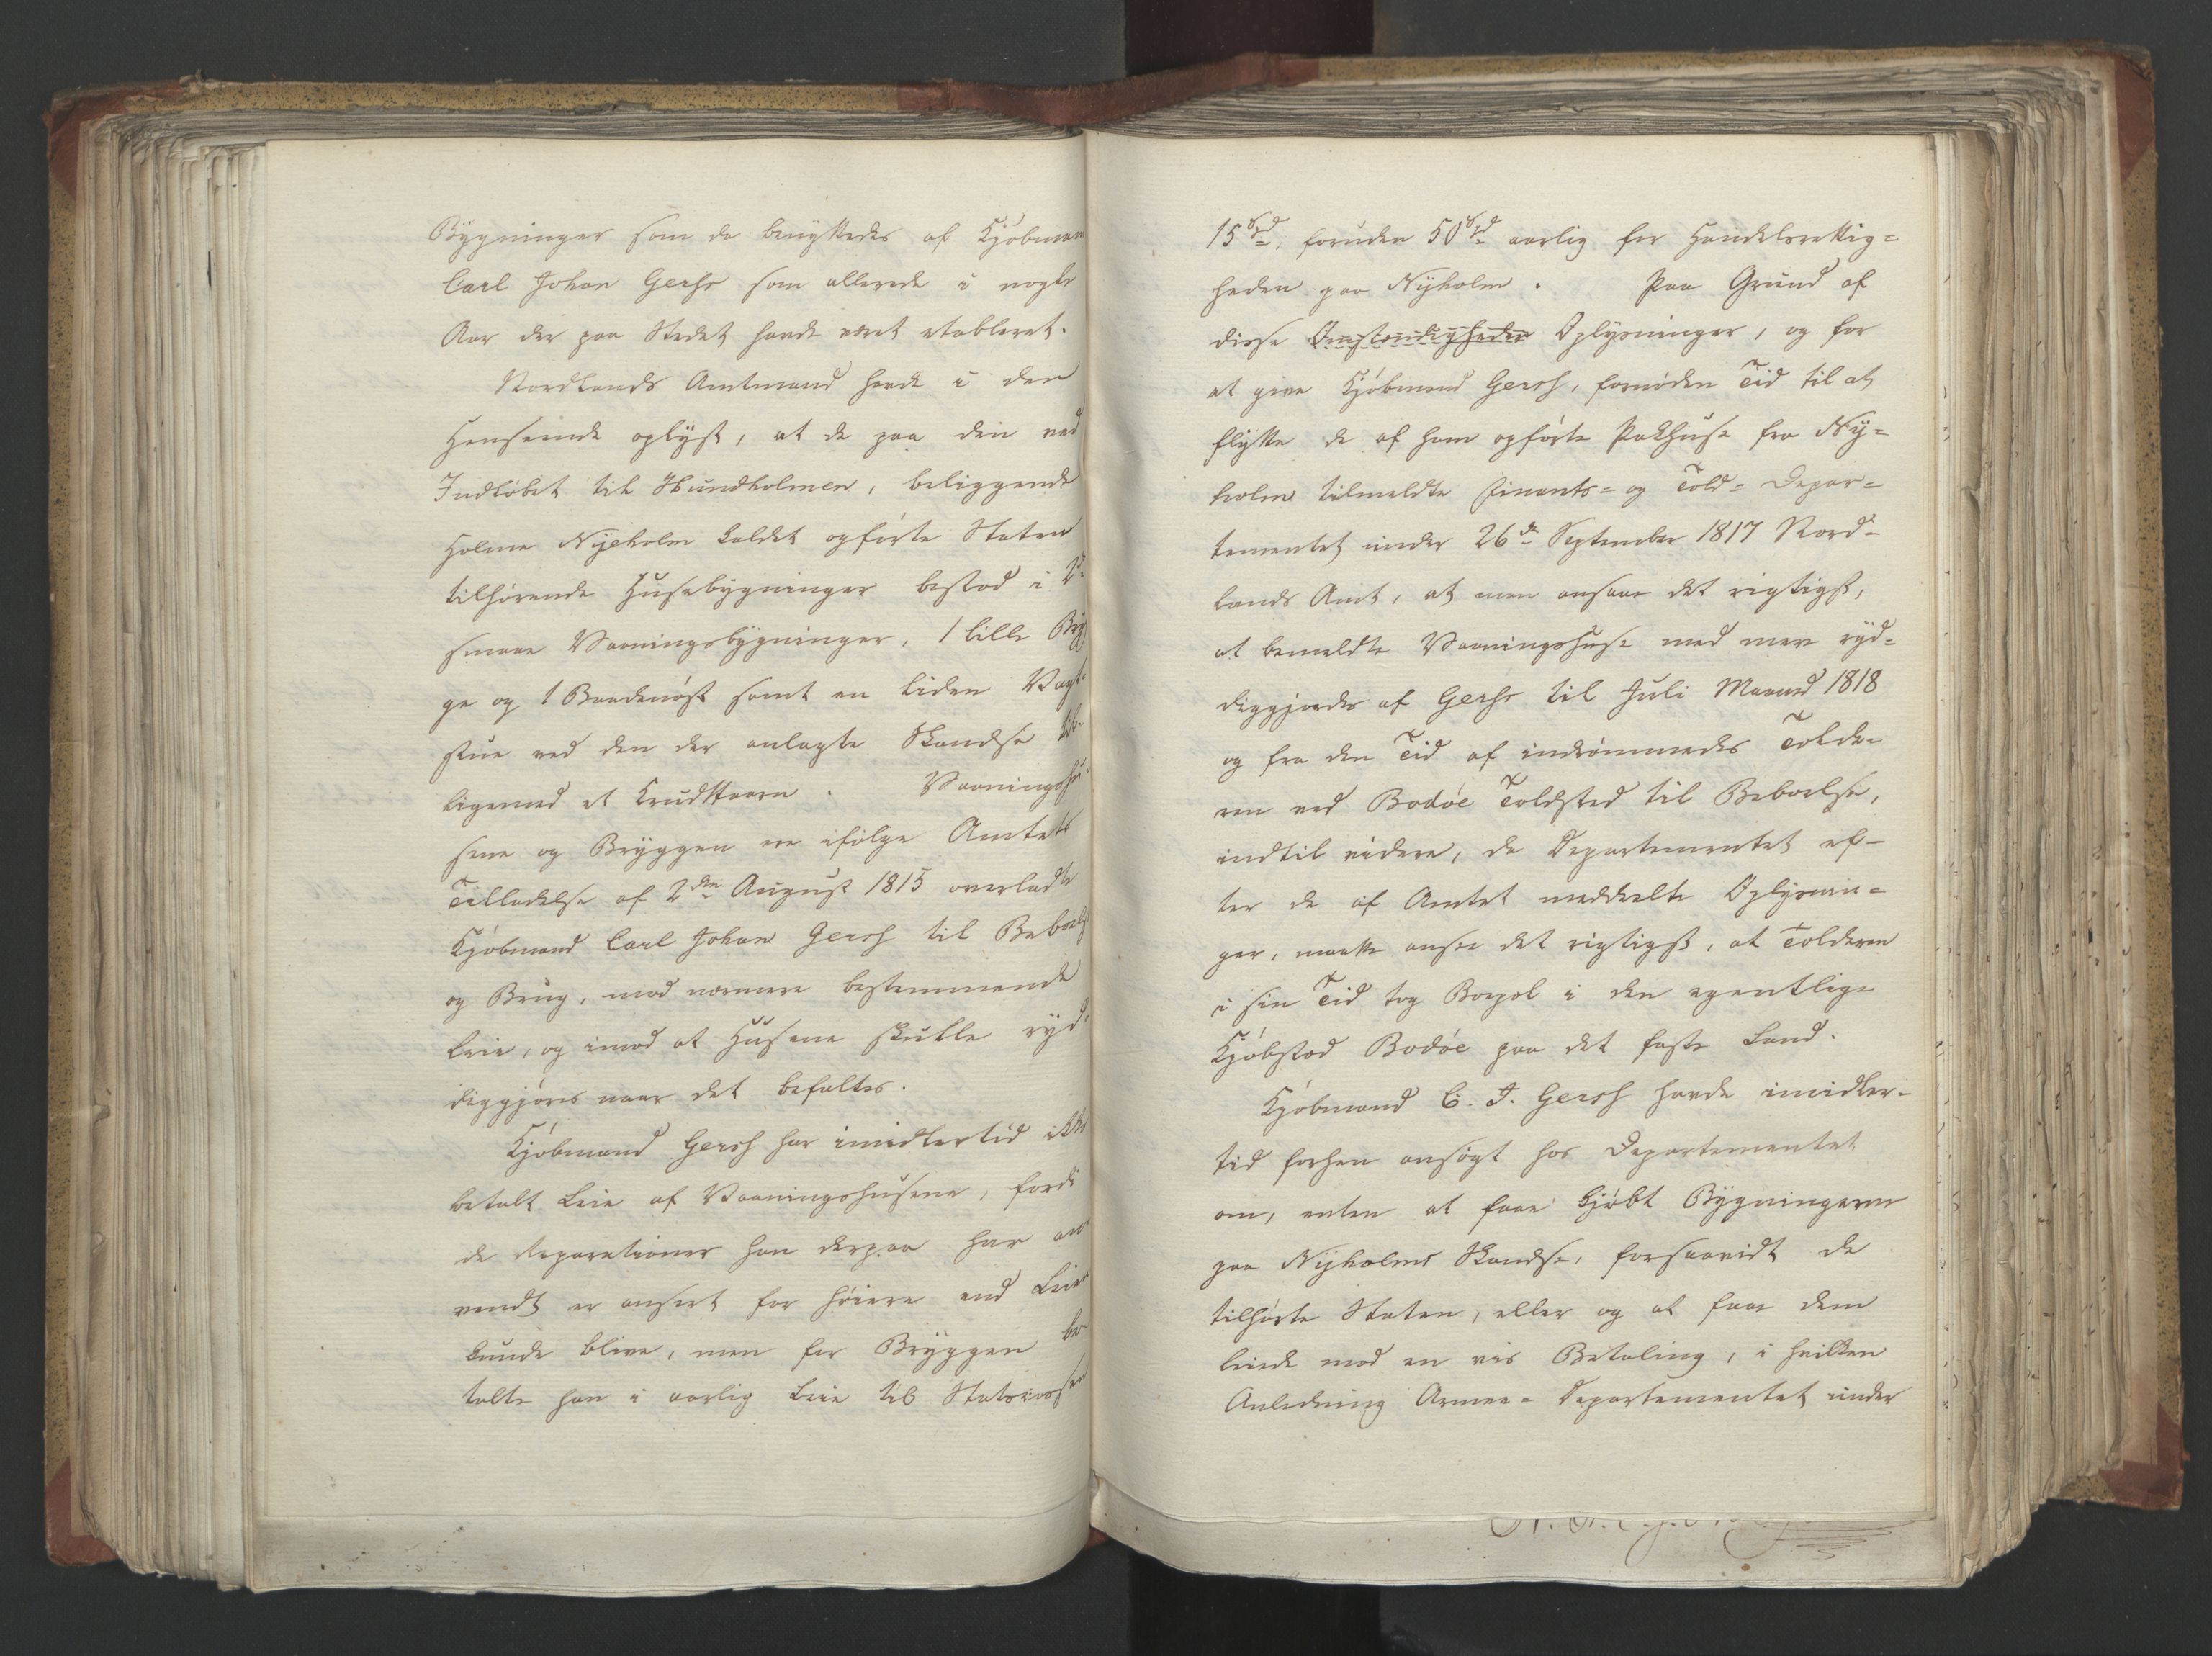 Bÿgninger som da benÿttedes af Kjøbman
Carl Johan Gersh som allerede i nogle
Aar der paa Stedet havde været etableret.
Nordlands Amtmand havde i den
Henseende oplÿst, at de paa den ved
Indløbet til Hundholmen, beliggende
Holme Nÿeholm kaldet opførte Staten
tilhørende Husebÿgninger bestod i 2de
smaae Vaaningsbÿgninger, 1 lille Brÿg
ge og 1 Baadenøst samt en liden Vagt-
stue ved den der anlagte Skandse til-
ligemed et Krudttaarn. Vaaningshu-
sene og Brÿggen ere ifølge Amtets
Tilladelse af 2den August 1815 overladte
Kjøbmand Carl Johan Gersh til Beboelse
og Brug, mod nærmere bestemmende
Leie, og imod at Husene skulle rÿd-
diggjøres naar det befaltes.
Kjøbmand Gersh har imidlertid ikke
betalt Leie af Vaaningshusene, fordi
de Reparationer han derpaa har an-
vendt er anseet for høiere end Leien
kunde blive, men for Brÿggen be-
talte han i aarlig Leie til Statscassen
15 Spd, foruden 50 Spd aarlig for Handelsrettig=
heden paa Nÿholm. Paa Grund af
disse Omstændigheder Oplÿsninger, og for
at give Kjøbmand Gersh, fornøden Tid til at
flÿtte de af ham opførte Pakhuse fra Nÿ=
holm tilmeldte Finants= og Told= Depar=
tementet under 26de September 1817 Nord-
lands Amt, at man ansaae det rigtigst,
at bemeldte Vaaningshuse med mere rÿd=
diggjordes af Gersh til Juli Maaned 1818
og fra den Tid af indrømmedes Tolde-
ren ved Bodøe Toldsted til Beboelse,
indtil videre, da Departementet ef-
ter de af Amtet meddeelte Oplÿsnin=
ger, maatte ansee det rigtigst, at Tolderen
i sin Tid tog Bopæl i den egentlige
Kjøbstad Bodøe paa det faste Land.
Kjøbmand C. J. Gersh havde imidler-
tid forhen ansøgt hos Departementet
om, enten at faae kjøbt Bÿgningerne
paa Nÿholms Skandse, forsaavidt de
tilhørte Staten, eller og at faae dem
leiede mod en vis Betaling, i hvilken
Anledning Armee= Departementet under